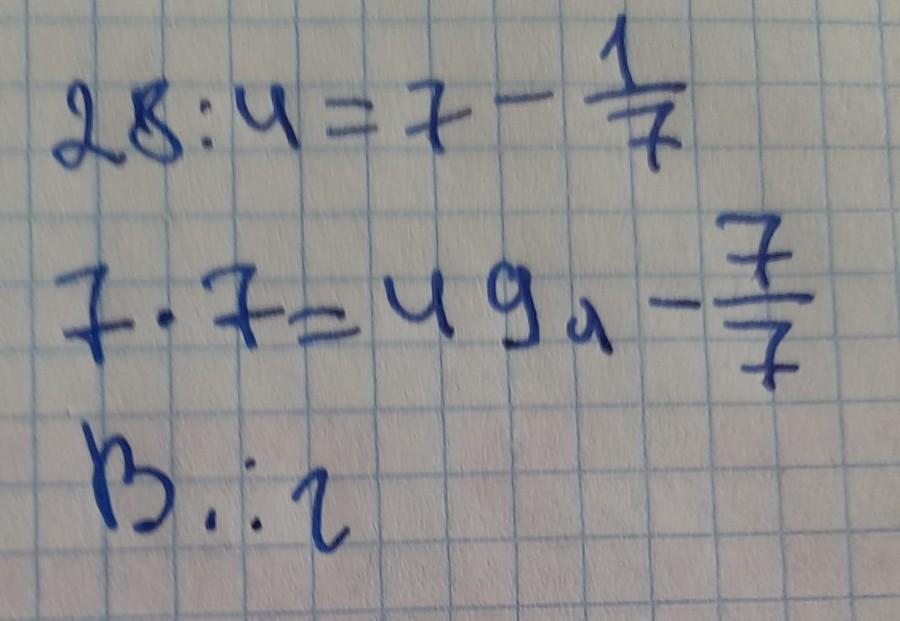 28:4=7-1/7
7·7=49л-7/7
В.: г